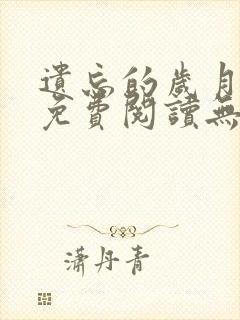 遺忘的歲月
免費閱讀無
瀟丹青